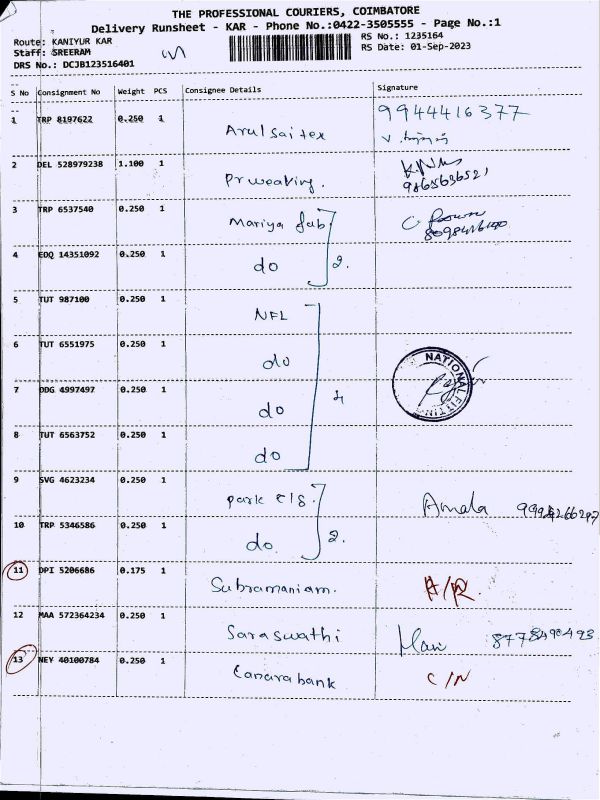 THE PROFESSIONAL COURIERS, COIMBATORE
Delivery Runsheet - KAR - Phone No.:0422-3505555 - Page No.:1
Route: KANIYUR KAR
RS No.: 1235164
Staff: SREERAM
RS Date: 01-Sep-2023
DRS No.: DCJB123516401
S No Consignment No Weight PCS Consignee Details Signature
1 TRP 8197622 0.250 1 Arul Sai tex 9944416377
2 DEL 528979238 1.100 1 Pr weaving.
3 TRP 6537540 0.250 1 Mariya fab
4 EDQ 14351092 0.250 1 do 2.
5 TUT 987100 0.250 1 NFL
6 TUT 6551975 0.250 1 do
NATIONAL FITTIN
7 DDG 4997497 0.250 1 do 4
8 TUT 6563752 0.250 1 do
9 SVG 4623234 0.250 1 park clg. Amala
10 TRP 5346586 0.250 1 do. 2.
11 DPI 5206686 0.175 1 Subramaniam. A/R.
12 MAA 572364234 0.250 1 Saraswathi Hari
13 NEY 40100784 0.250 1 Canara bank C/N